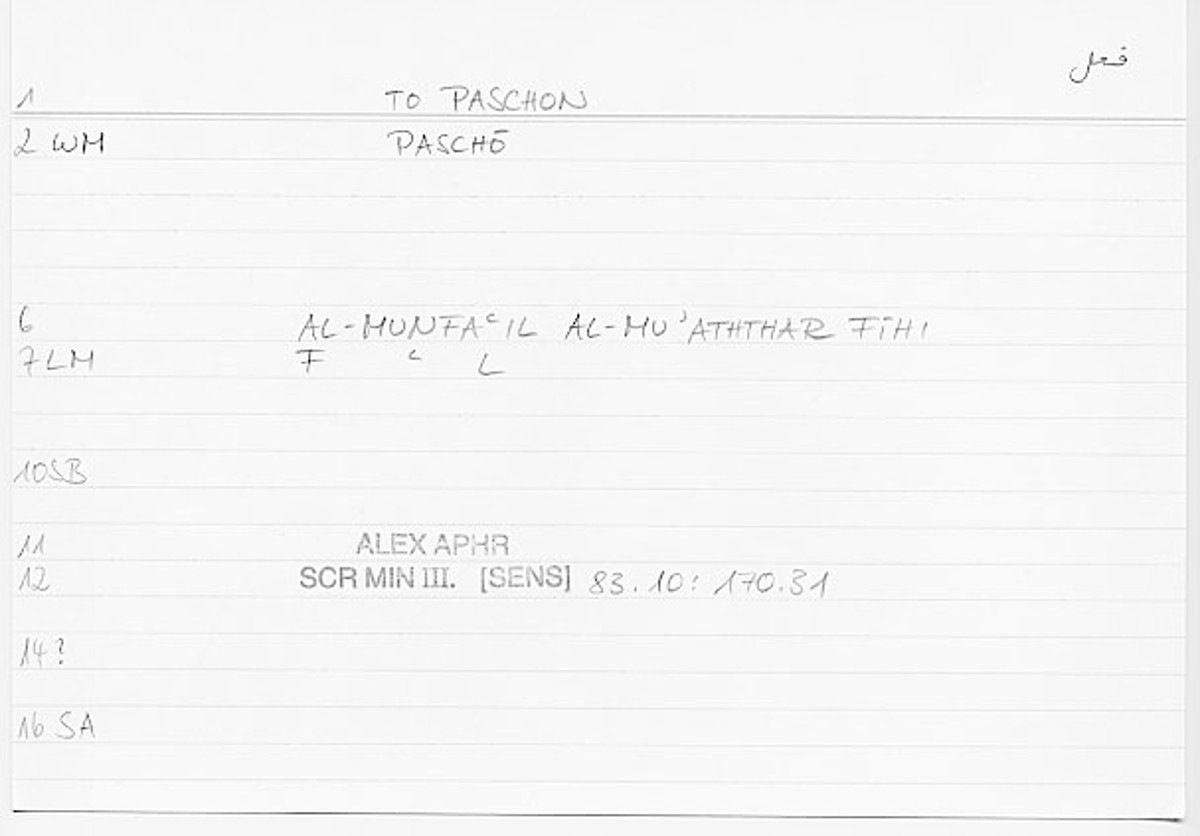 فعل
1 TO PASCHON
2 WM PASCHŌ
6 AL-MUNFAʿIL AL-MUʾATHTHAR FĪHI
7 LM F ʿ L
10 SB
11 ALEX APHR
12 SCR MIN III. [SENS] 83.10: 170.31
14 ?
16 SA